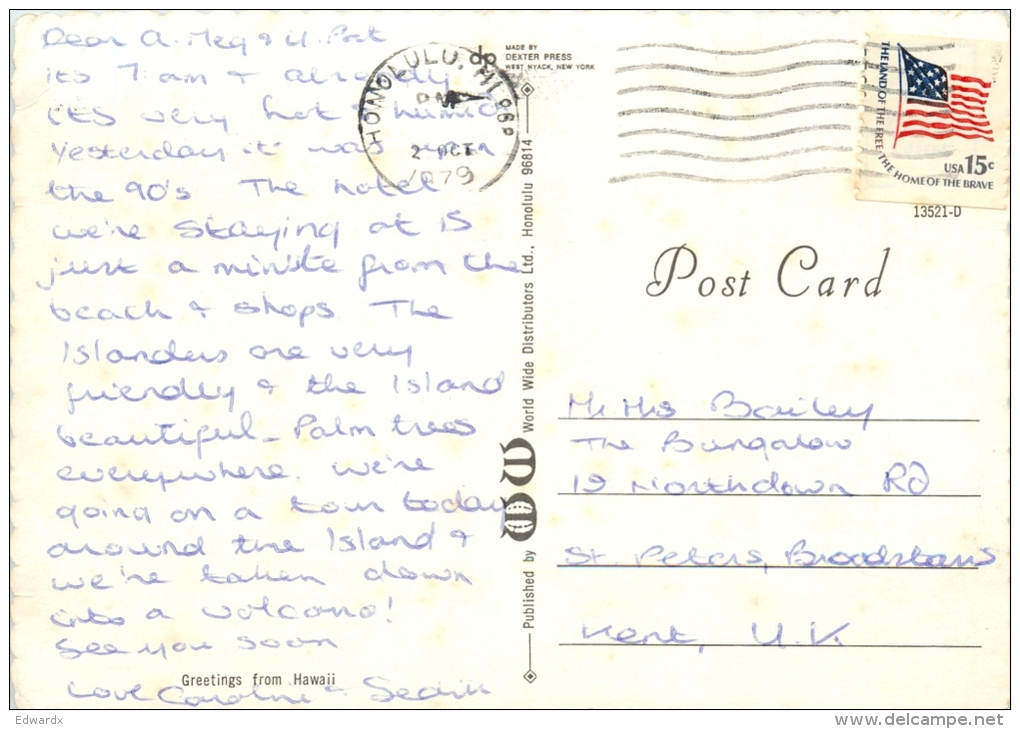 Dear A. Meg & U. Pat
its 7 am & already
its very hot & humid
Yesterday it was in
the 90's The hotel
we're staying at is
just a minute from the
beach & shops. The
Islanders are very
friendly & the Island
beautiful_ Palm trees
everywhere. We're
going on a tour today
around the Island &
we're taken down
into a volcano!
See you soon
Love Caroline &
Greetings from Hawaii
MADE BY
DEXTER PRESS
WEST NYACK, NEW YORK
HONOLULU, HI 968
PM
2 OCT
1979
Published by World Wide Distributors Ltd., Honolulu 96814
THE LAND OF THE FREE · THE HOME OF THE BRAVE
USA 15c
13521-D
Post Card
Mr Mrs Bailey
The Bungalow
19 Northdown Rd
St. Peters, Broadstairs
Kent, U.K.
Edwardx
www.delcampe.net